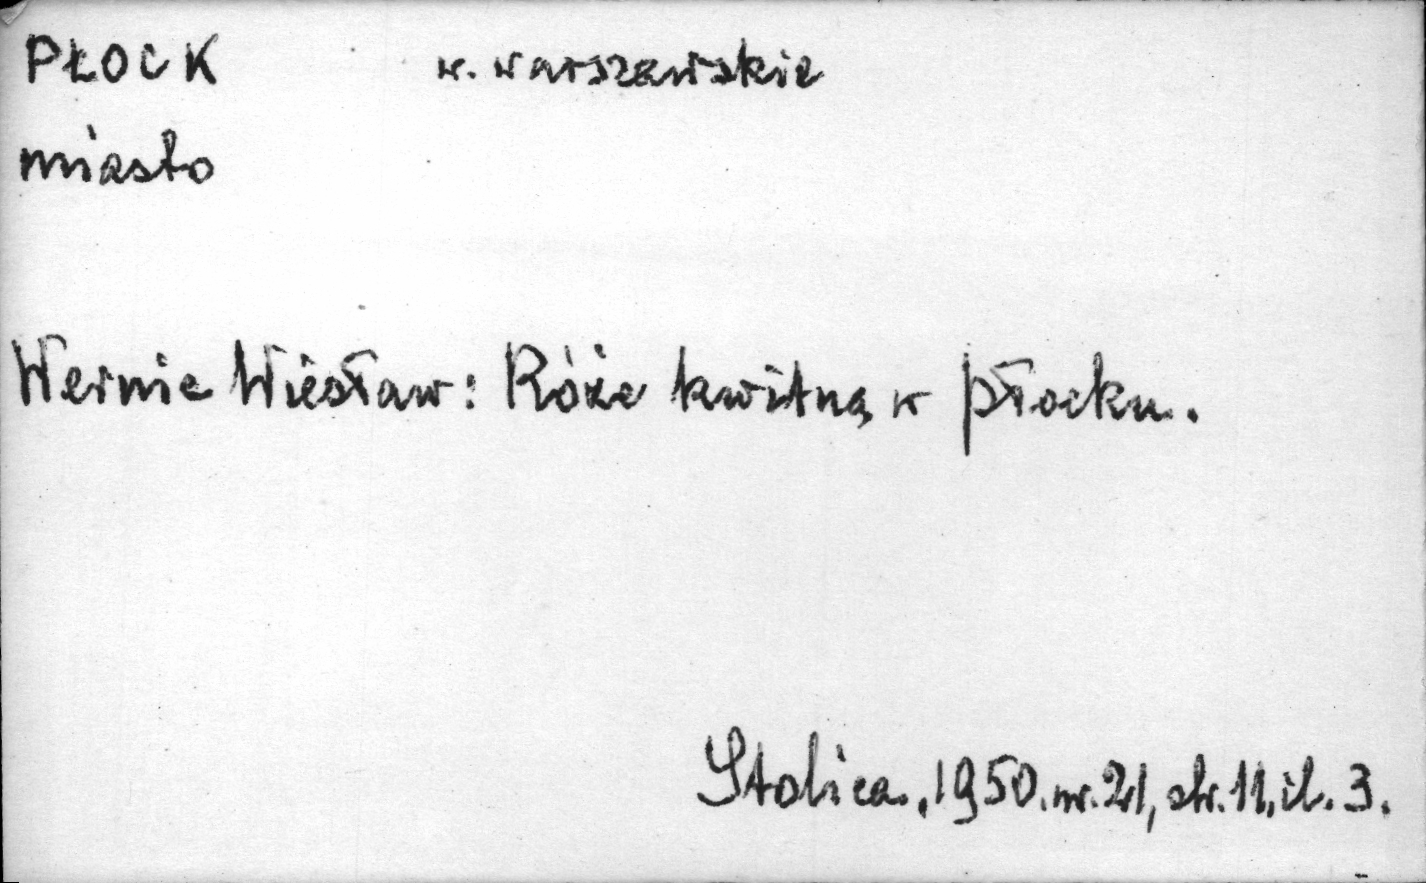 PŁOCK w. warszawskie
miasto
Wernic Wiesław: Róże kwitną w Płocku.
Stolica, 1950. nr. 21, str. 11, il. 3.